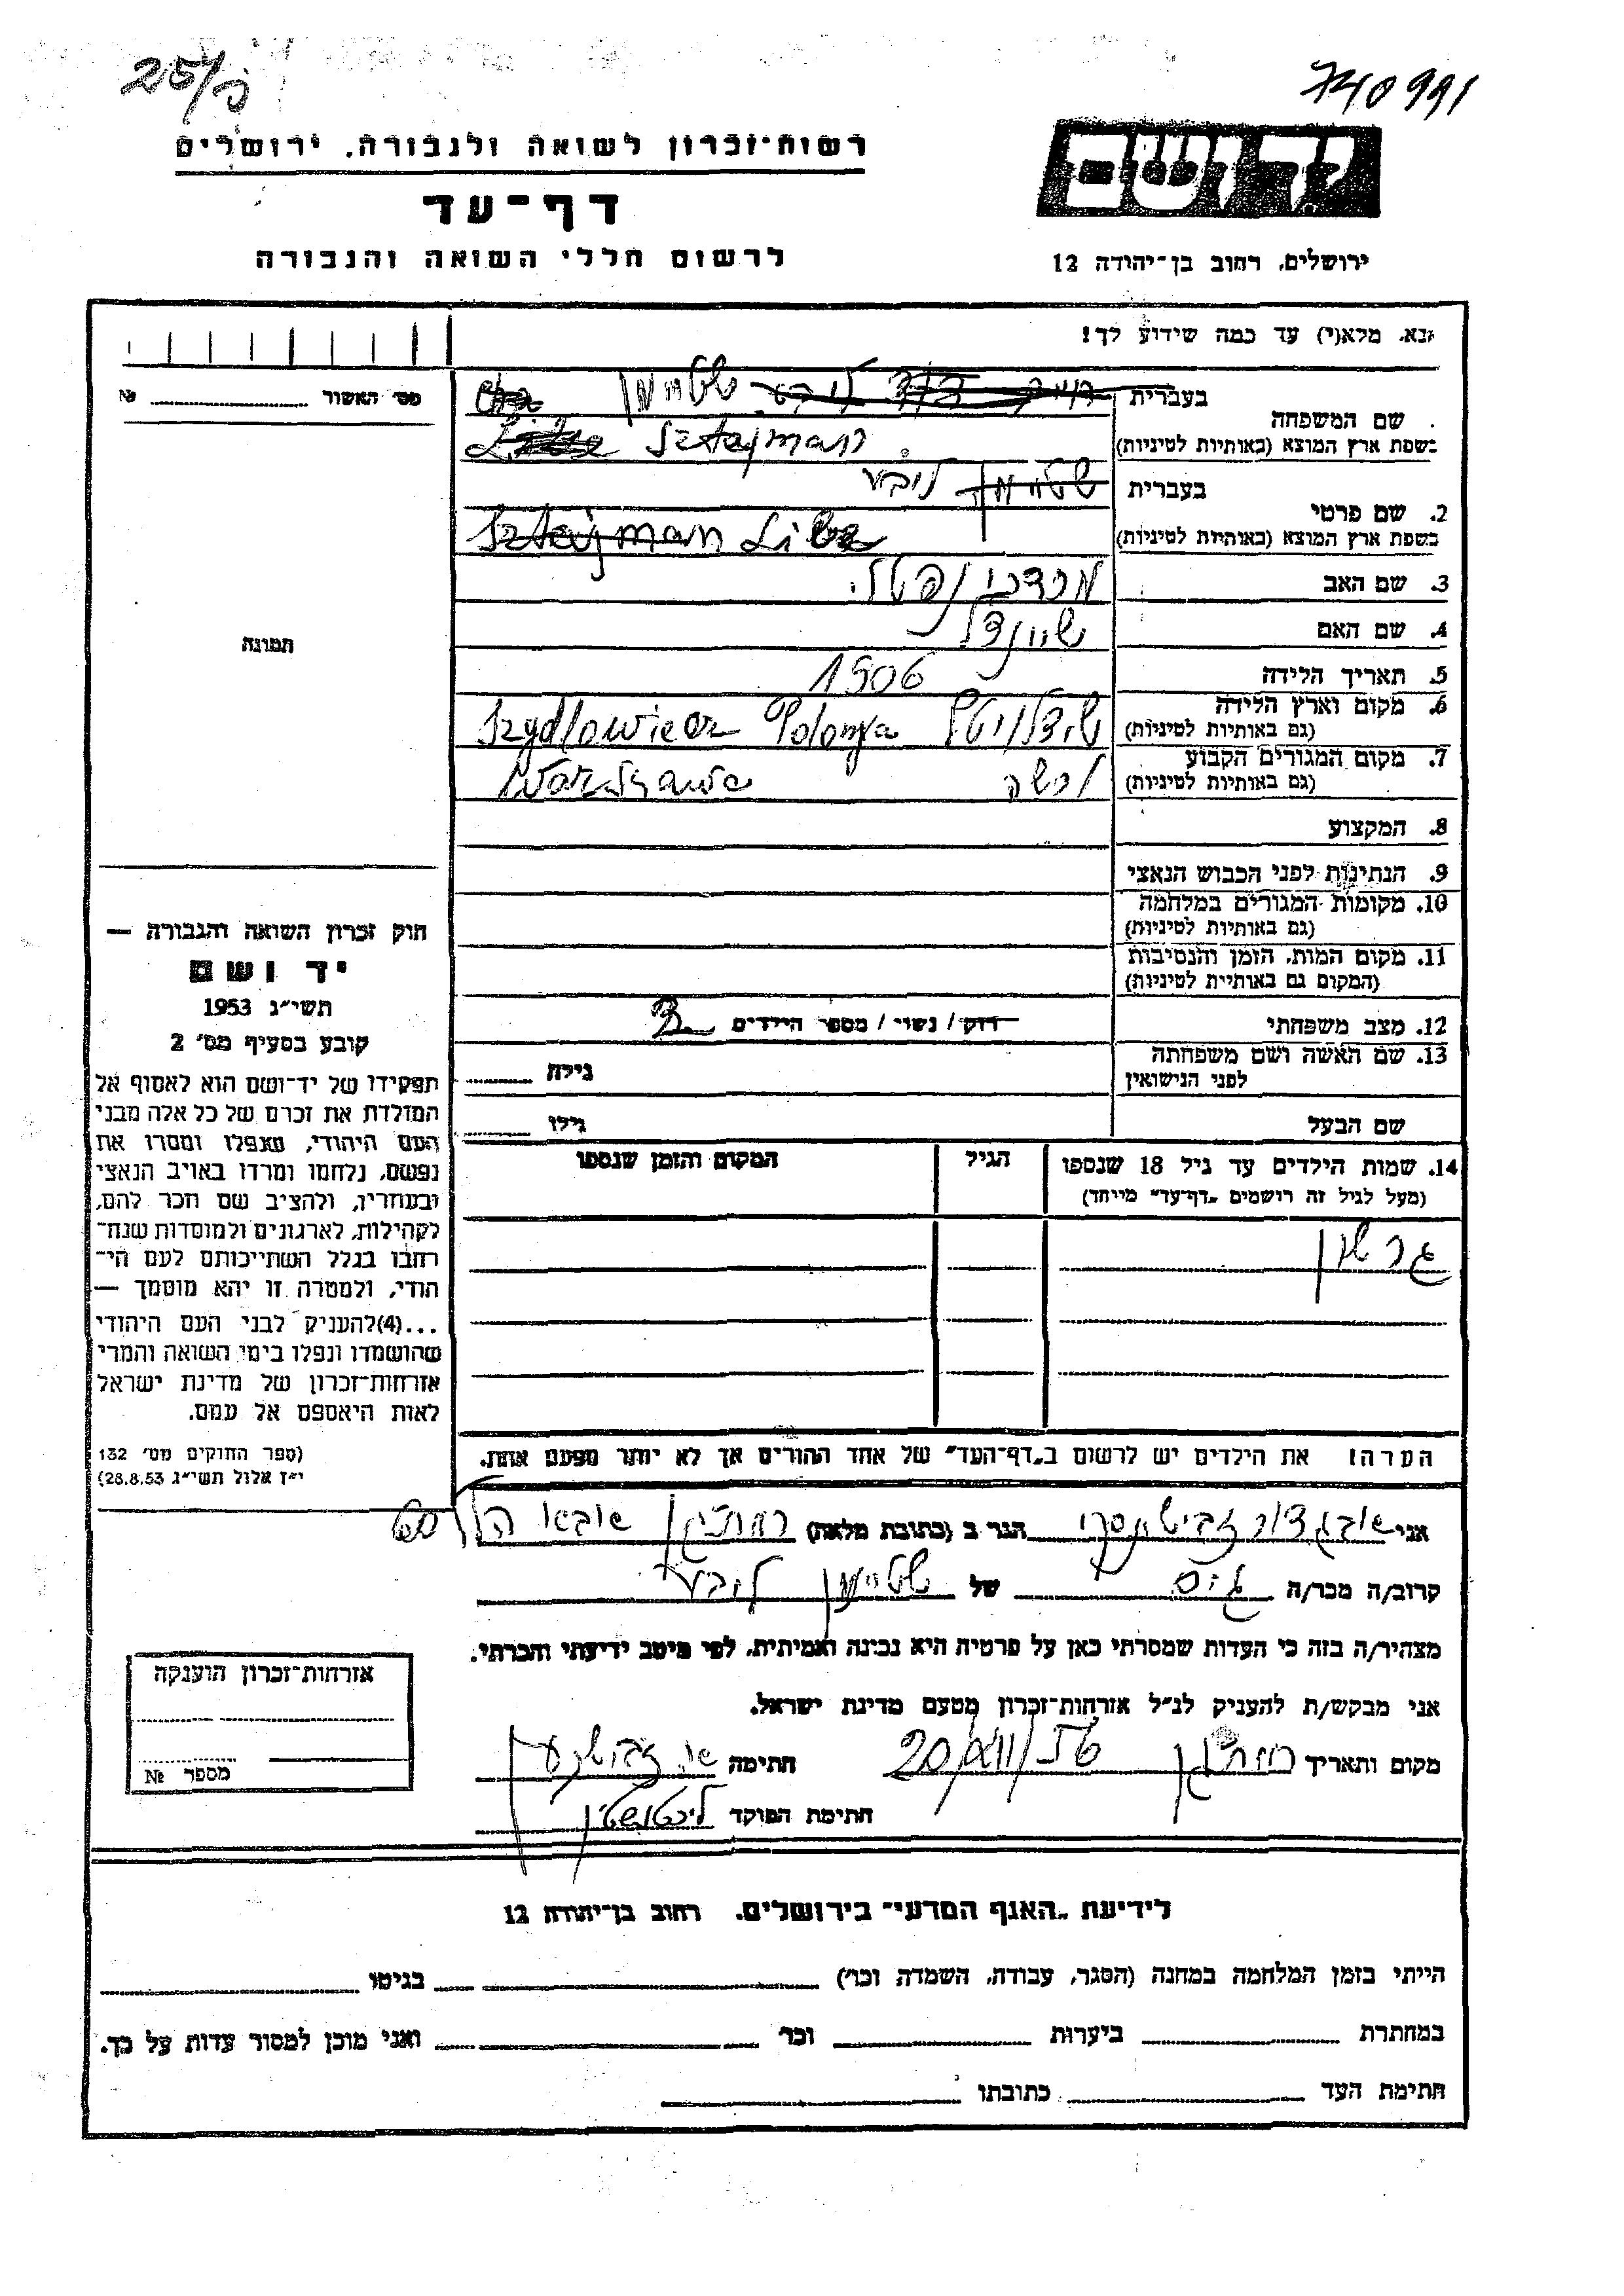 25/כ
740991
רשות-זכרון לשואה ולגבורה, ירושלים
יד ושם
דף-עד
לרשום חללי השואה והגבורה
ירושלים, רחוב בן-יהודה 12
נא, מלא(י) עד כמה שידוע לך!
מס' האשור № 
שם המשפחה
בעברית שטיימן
בשפת ארץ המוצא (באותיות לטיניות) Sztejman
2. שם פרטי
בעברית שטיימן ליבע
בשפת ארץ המוצא (באותיות לטיניות) Sztejman Liba
3. שם האב מרדכי נפטלי
4. שם האם שיינדל
5. תאריך הלידה 1906
6. מקום וארץ הלידה שידלוביץ Polonya Szydlowiecz
(גם באותיות לטיניות)
7. מקום המגורים הקבוע ורשה Warszawa
(גם באותיות לטיניות)
8. המקצוע
9. הנתינות לפני הכבוש הנאצי
10. מקומות המגורים במלחמה
(גם באותיות לטיניות)
11. מקום המות, הזמן והנסיבות
(המקום גם באותיות לטיניות)
12. מצב משפחתי רוק / נשוי / מספר הילדים
13. שם האשה ושם משפחתה
לפני הנישואין
גילה
שם הבעל
גילו
14. שמות הילדים עד גיל 18 שנספו
(מעל לגיל זה רושמים "דף-עד" מייחד)
הגיל
המקום והזמן שנספו
גרשון
הערה: את הילדים יש לרשום ב"דף-העד" של אחד ההורים אך לא יותר מפעם אחת.
תמונה
חוק זכרון השואה והגבורה —
יד ושם
תשי"ג 1953
קובע בסעיף מס' 2
תפקידו של יד-ושם הוא לאסוף אל
המולדת את זכרם של כל אלה מבני
העם היהודי, שנפלו ומסרו את
נפשם, נלחמו ומרדו באויב הנאצי
ובעוזריו, ולהציב שם וזכר להם,
לקהילות, לארגונים ולמוסדות שנח-
רבו בגלל השתייכותם לעם הי-
הודי, ולמטרה זו יהא מוסמך —
...(4)להעניק לבני העם היהודי
שהושמדו ונפלו בימי השואה והמרי
אזרחות-זכרון של מדינת ישראל
לאות היאספם אל עמם.
(ספר החוקים מס' 132
י"ז אלול תשי"ג 28.8.53)
אני הגר ב (כתובת מלאה) 60
קרוב/ה מכר/ה גיס של שטיימן ליבע
מצהיר/ה בזה כי העדות שמסרתי כאן על פרטיה היא נכונה ואמיתית, לפי מיטב ידיעתי והכרתי.
אני מבקש/ת להעניק לנ"ל אזרחות-זכרון מטעם מדינת ישראל.
מקום ותאריך רמת גן 20/XII/56 חתימה
חתימת הפוקד ליכטנשטיין
אזרחות-זכרון הוענקה
מספר №
לידיעת "האגף המדעי" בירושלים, רחוב בן-יהודה 12
הייתי בזמן המלחמה במחנה (הסגר, עבודה, השמדה וכו') בגיטו
במחתרת ביערות וכו' ואני מוכן למסור עדות על כך.
חתימת העד כתובתו